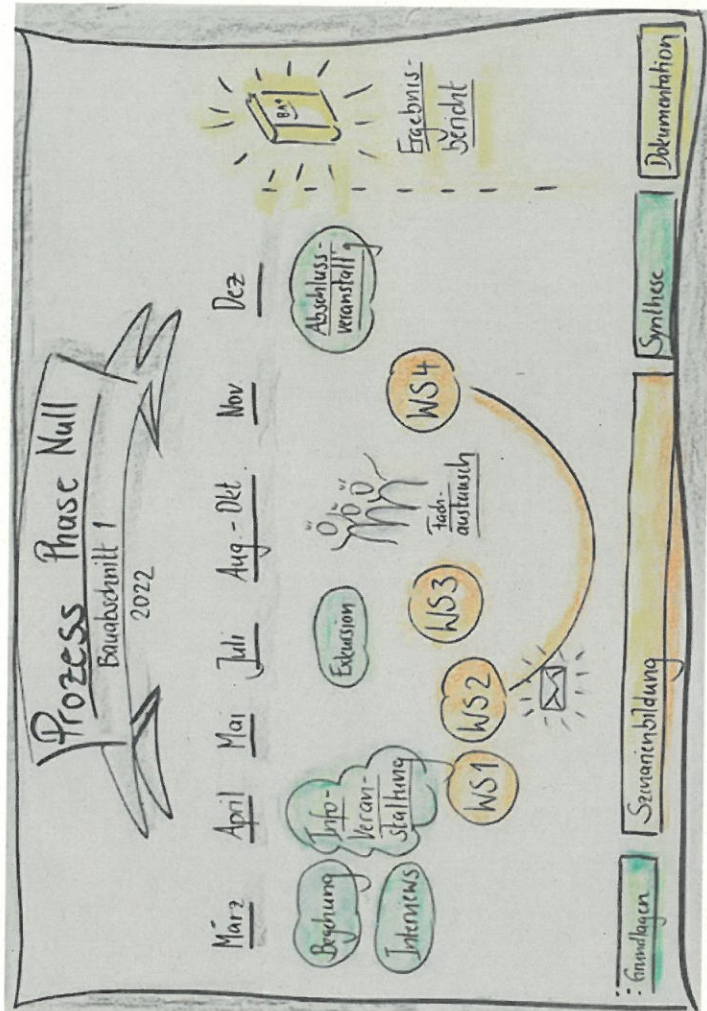 Prozess Phase Null
Bauabschnitt 1
2022
März
April
Mai
Juli
Aug.-Okt.
Nov
Dez
Begehung
Interviews
Info-
Veran-
staltung
WS1
WS2
Exkursion
WS3
Fach-
austausch
WS4
Abschluss-
veranstalt'g
Ergebnis-
bericht
Grundlagen
Szenarienbildung
Synthese
Dokumentation